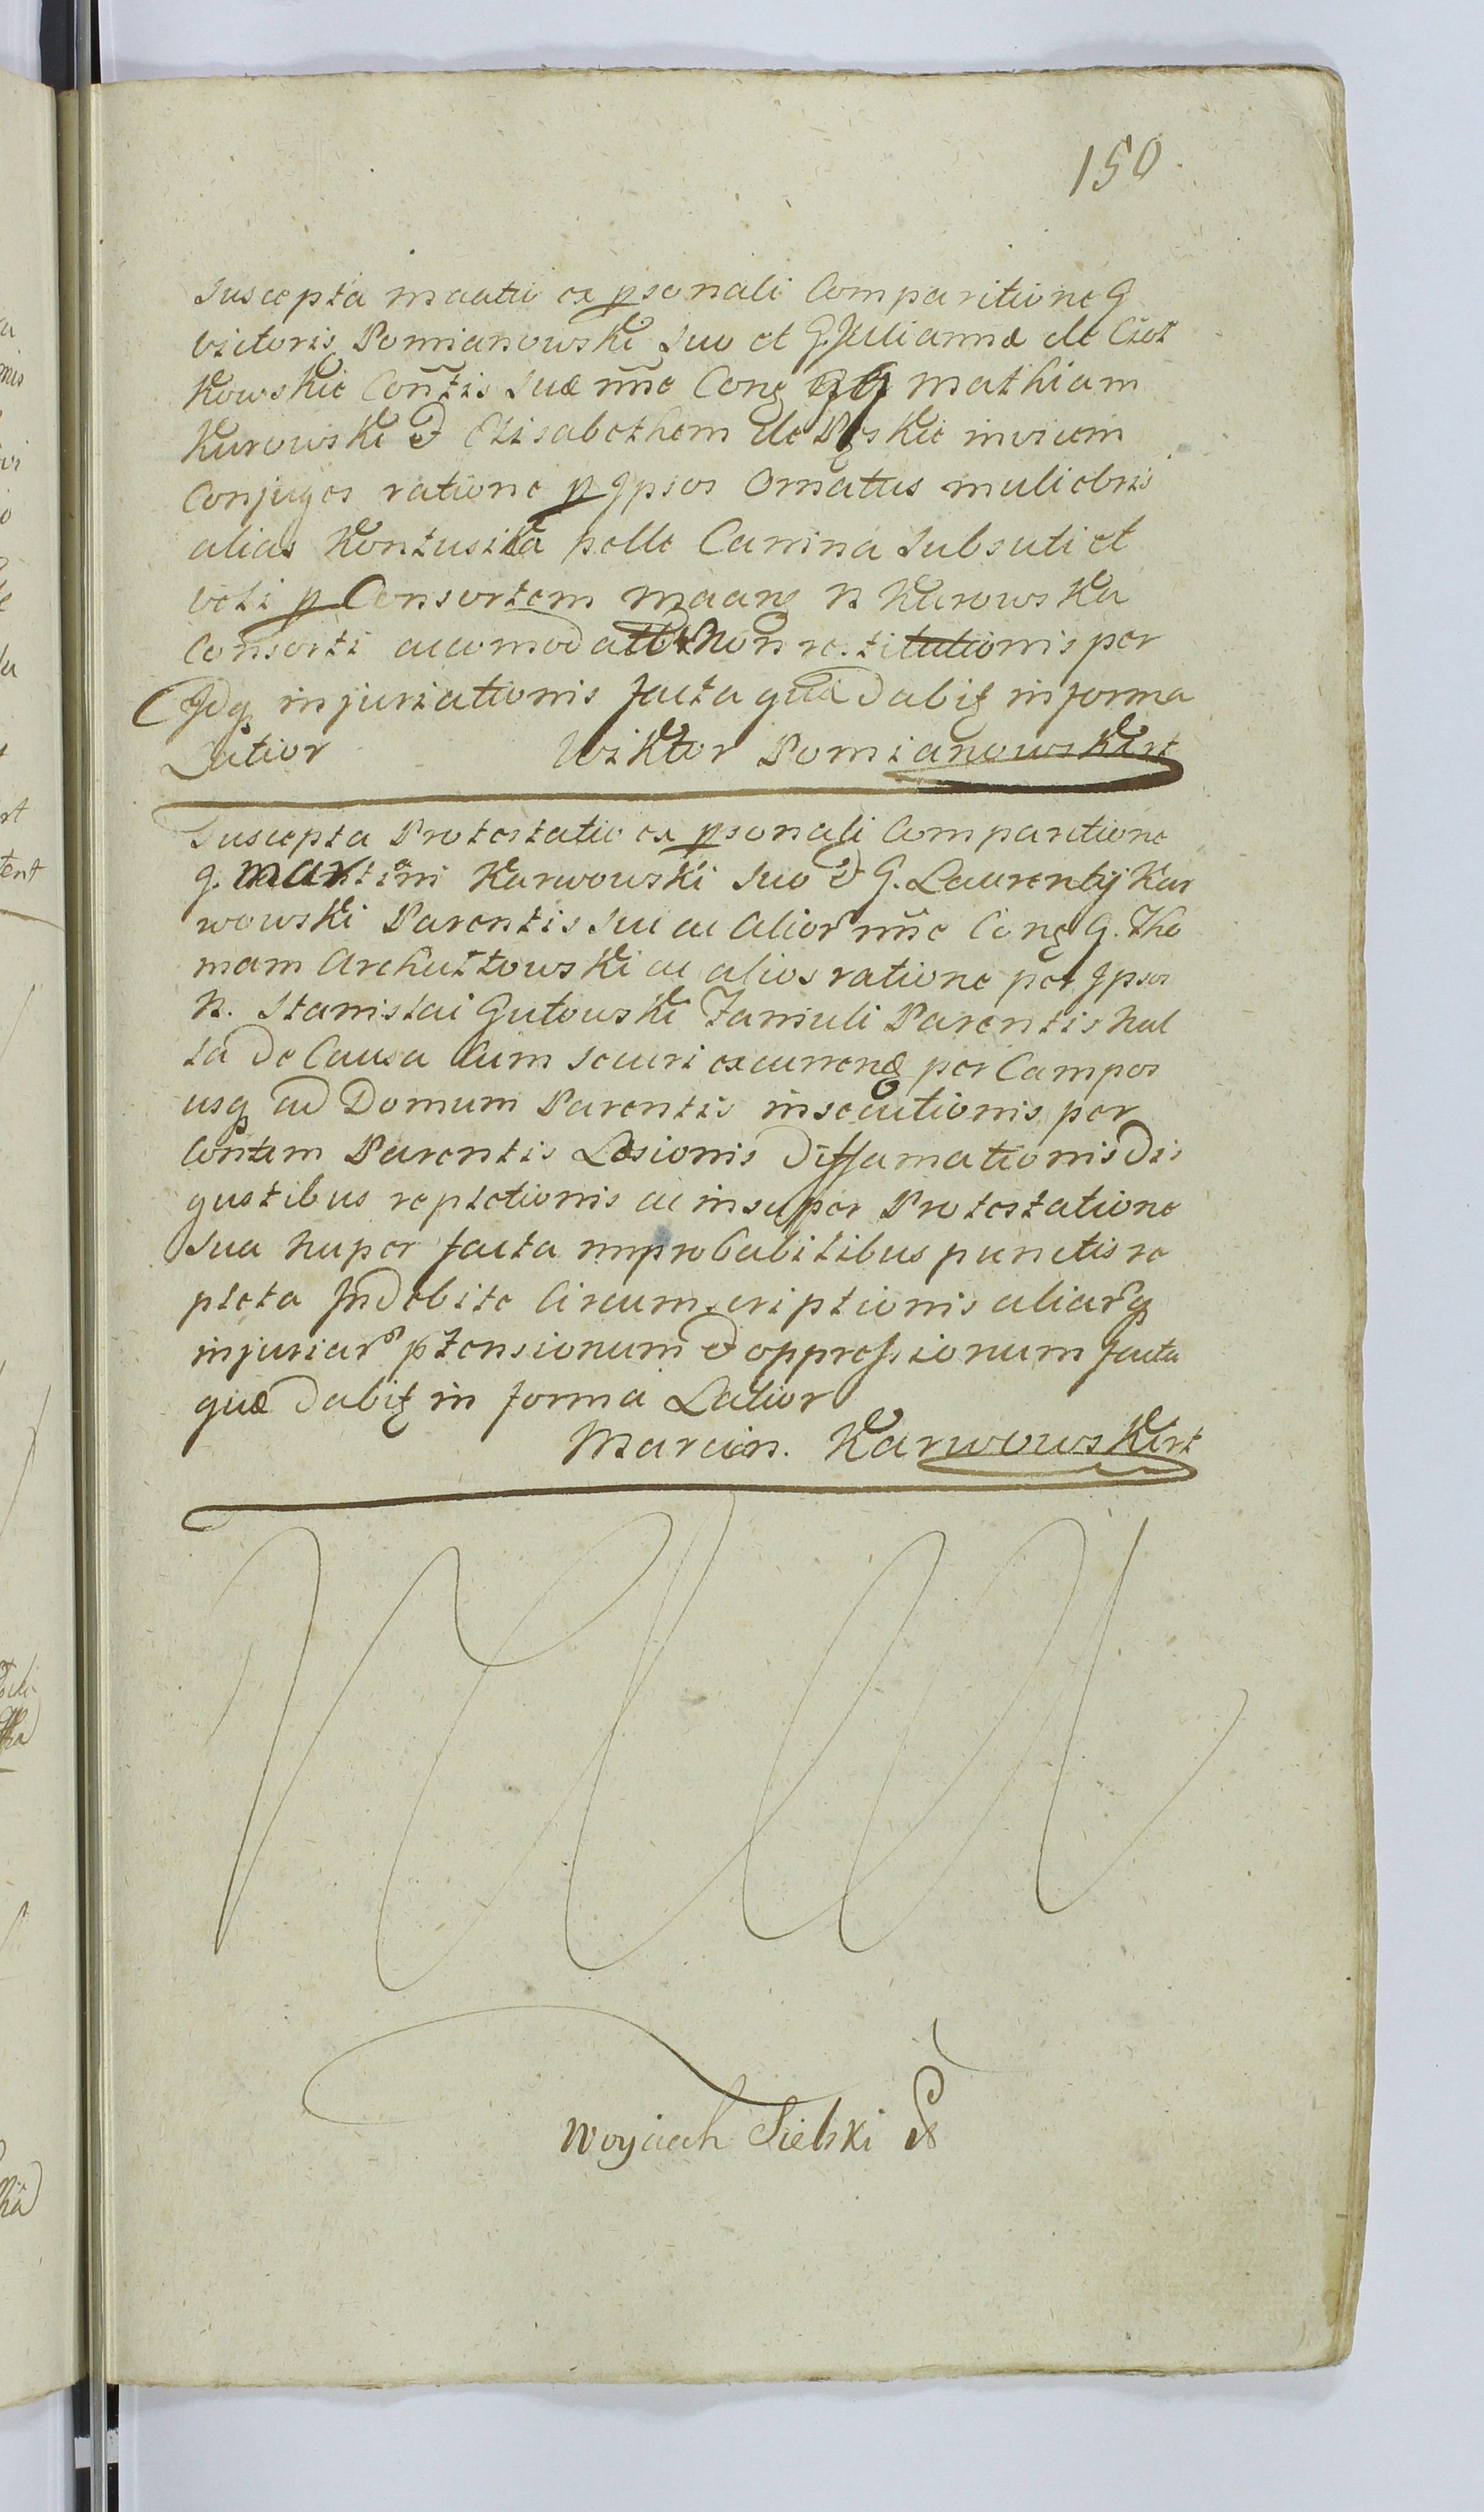 150
Suscepta maatio ex psonali Comparitione G
victoris Pomianowski suo et G. Julianna de Ciot
kowskie Contis suæ nne Cong GG Mathiam
Kurowski et Elisabetham de invicem
Conjuges ratione p Ipsos Ornatus muliebris
alias Kontusika pelle Canina subsuti et
p Consortem maang N Kurowska
Consorti accomodati non restitutionis per
Idq injuriationis facta quæ dabit in forma
Latior Wiktor Pomianowski
Suscepta Protestatio ex psonali Comparitione
g. Martini Karwowski suo et G. Laurentij Kar
wowski Parentis sui ac alior nne Cong G. Tho
mam Archutowski ac alios ratione per Ipsos
N. Stanislai Gutowski Famuli Parentis nul
la de Causa Cum securi excurreng per Campos
usq ad Domum Parentis insecutionis per
Contem Parentis Læsionis Diffamationis dis
gustibus repletionis ac insuper Protestatione
sua nuper facta improbabilibus punctis re
pleta Indebite Circumscriptionis aliarq
injuriar ptensionum et oppressionum facta
quæ dabit in forma Latior
Marcin. Karwowski
Woyciech Sielski